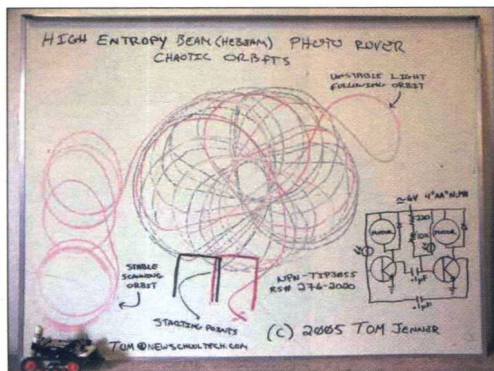 HIGH ENTROPY BEAM (HEBEAM) PHOTO ROVER
CHAOTIC ORBITS
UNSTABLE LIGHT
FOLLOWING ORBIT
≈6V 4"AA"NiMH
MOTOR
220
10K
MOTOR
.1µF
.1µF
STABLE
SCANNING
ORBIT
NPN-TIP3055
RS# 276-2020
STARTING POINTS
(C) 2005 TOM JENNER
TOM@NEWSCHOOLTECH.COM